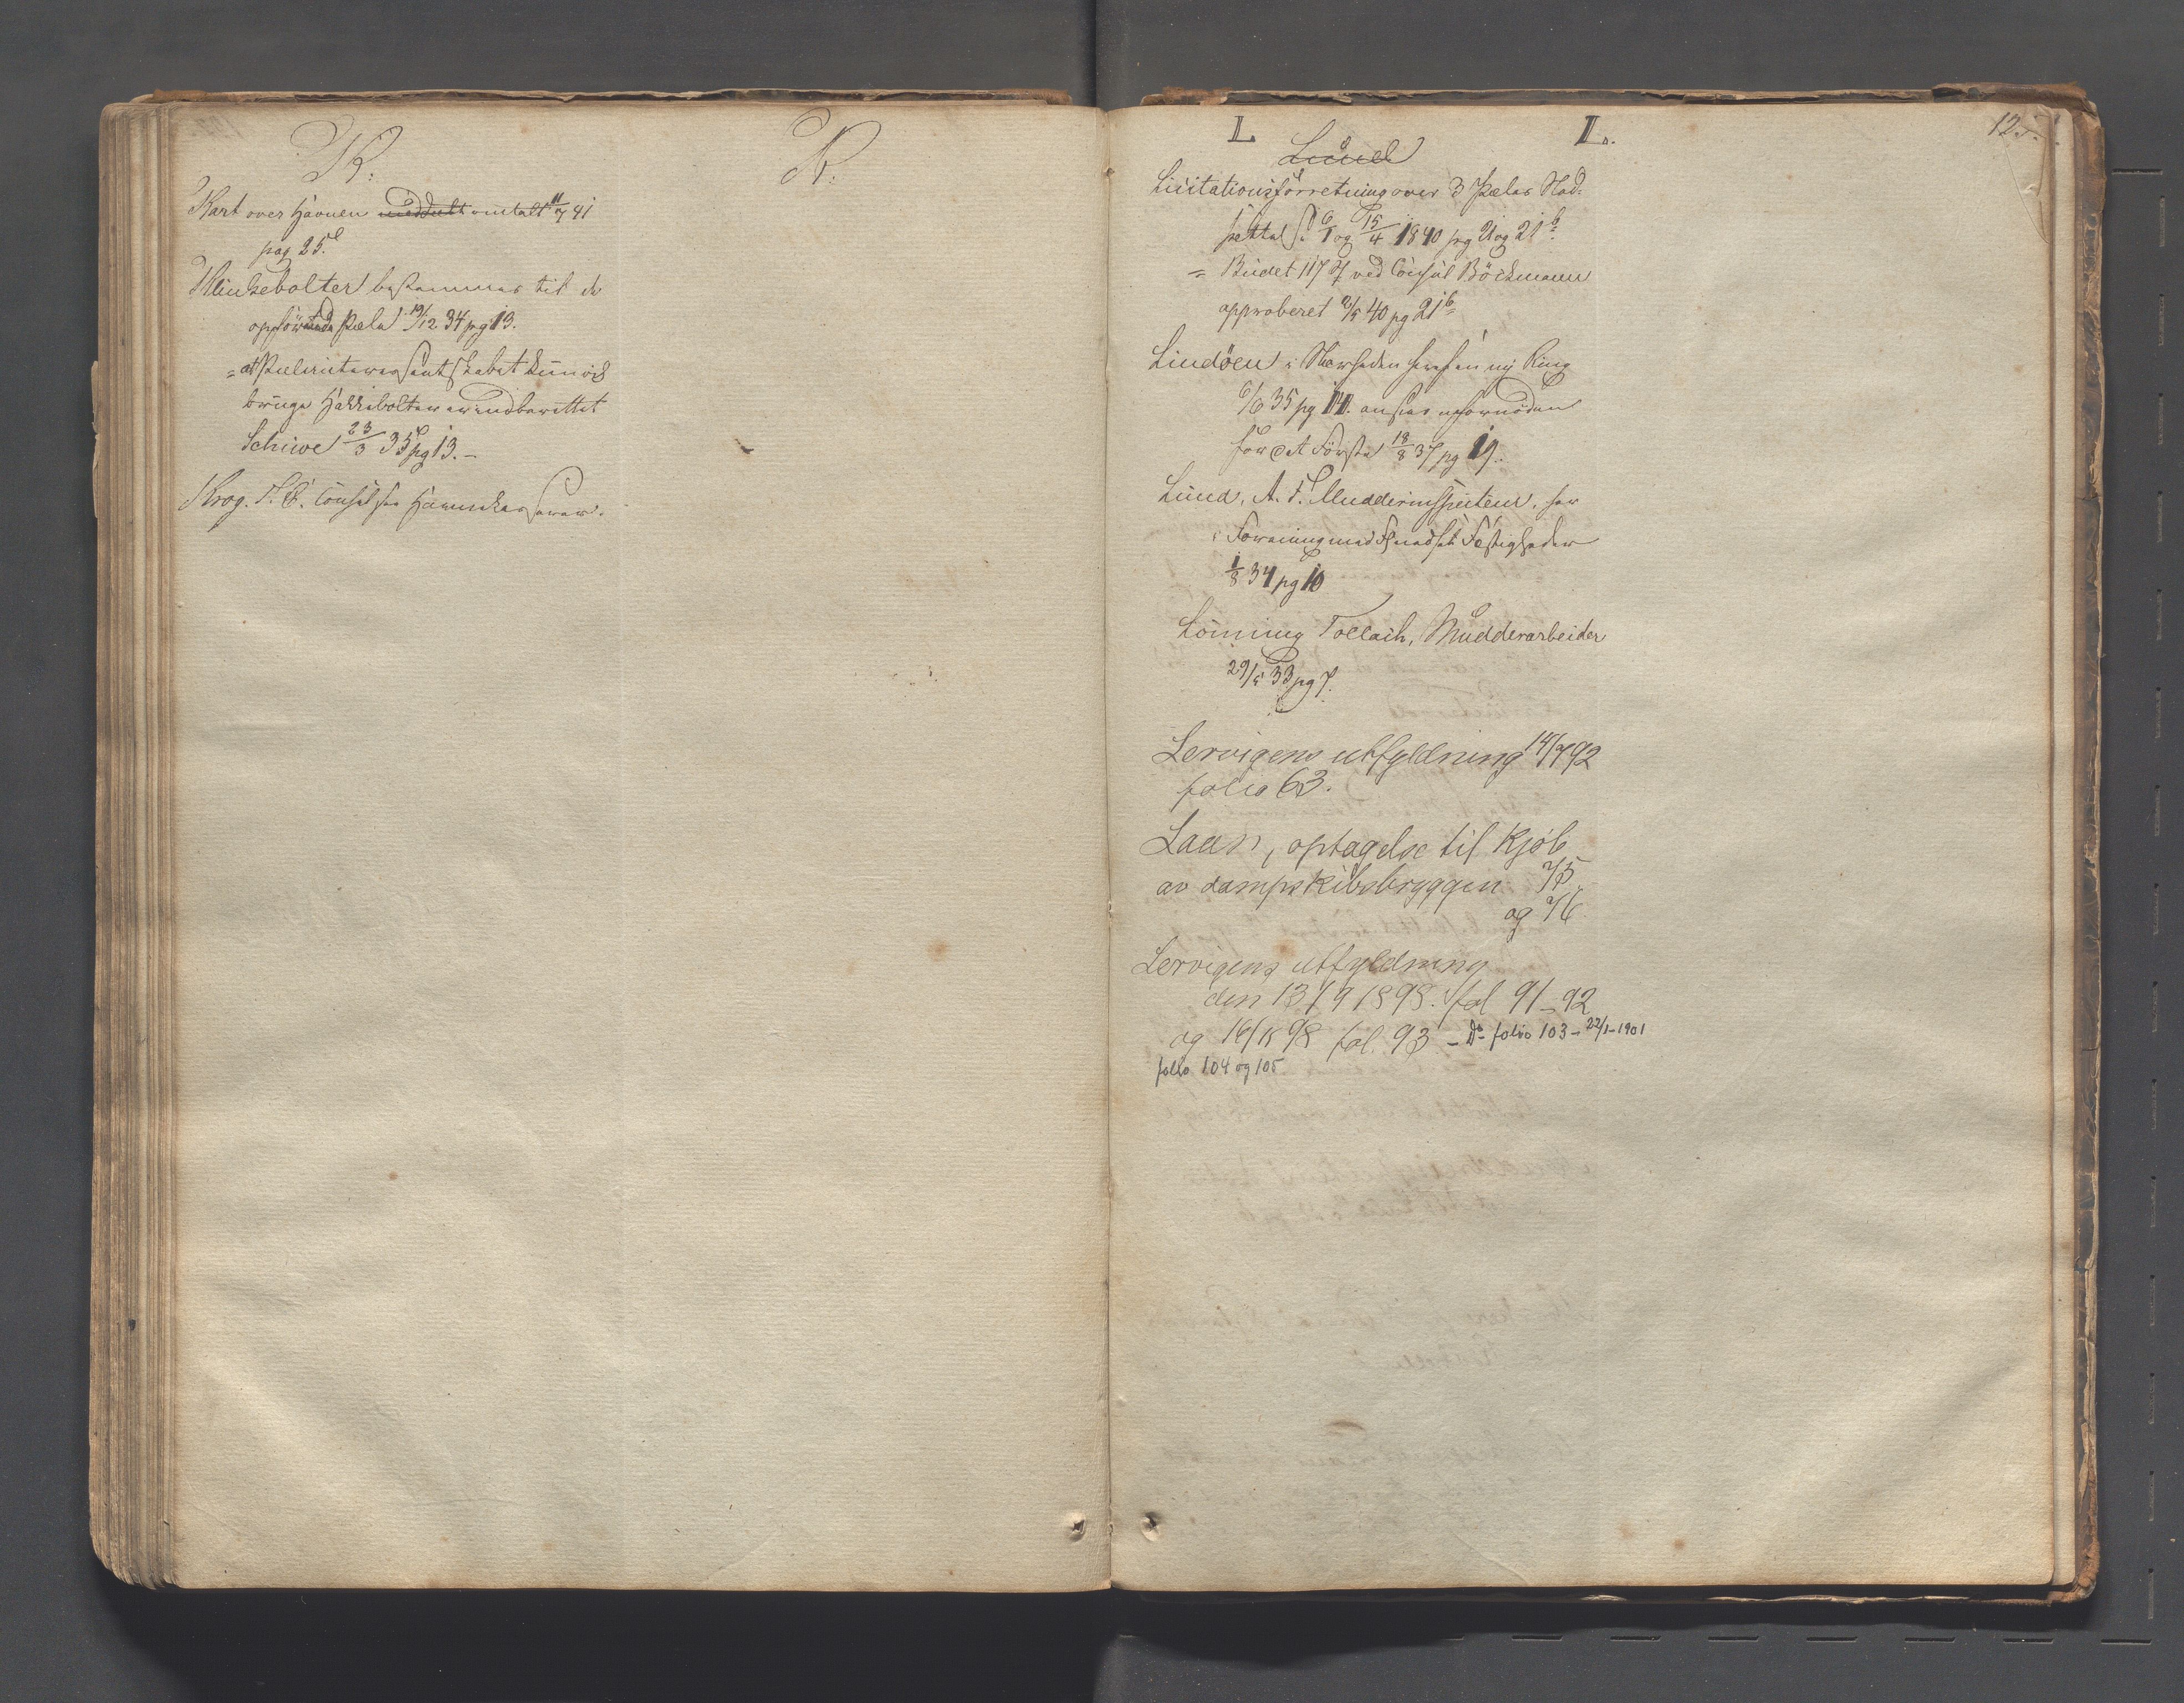 K.
K.
Kart over Havnen meddeelt omtalt 11/7 41
pag 25.
Klinkebolter bestemmes til de
opförende Pæle 19/12 34 pg 13.
= at Pæleinteressentskabet kun vil
bruge Hakkebolter er indberettet
Schive 23/3 35 pg 13. -
Krog. T. C. Consul see Havnekasserer.
L
L.
125.
Lund
Licitationsforretning over 3 Pæles Ned-
settelse 6/1 og 15/4 1840 pg 21 og 21b.
= Budet 117 ved Consul Böckmann
approberet 2/5 40 pg 21b
Lindöen i Nærheden en ny Ring
6/6 35 pg 14. ansees ufornöden
for det Förste 18/8 37 pg 19.
Lund, A. F. Mudderinspecteur, har
i Forening med
1/8 34 pg 10
Lönning Tollach, Mudderarbeider
29/5 33 pg 7.
Lervigens utfyldning 14/7 92
folio 63.
Laan, optagelse til Kjøb
av dampskibsbryggen 75
og 76.
Lervigens utfyldning
den 13/9 1898. fol 91-92
og 16/11 98 fol. 93 - Do folio 103 - 22/1-1901
folio 104 og 105